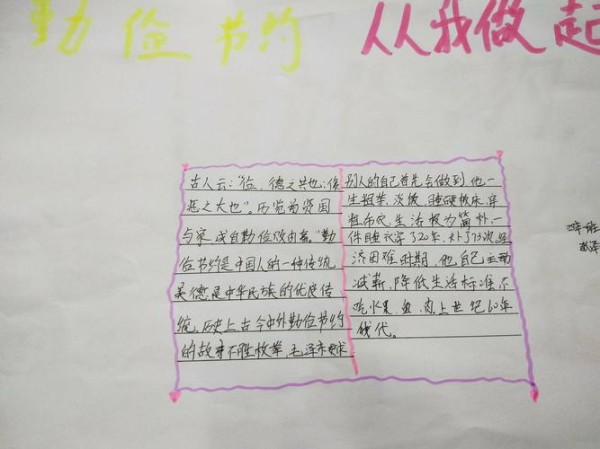 勤俭节约 从我做起
古人云:"俭,德之共也;侈
恶之大也"。历览前贤国
与家,成由勤俭败由奢。"勤
俭节约是中国人的一种传统
美德,是中华民族的优良传
统,历史上古今中外勤俭节约
的故事不胜枚举,毛泽东要求
别人的自己首先会做到,他一
生粗茶、淡饭,睡硬板床,穿
粗布衣,生活极为简朴,一
件睡衣穿了20年,补了73次,经
济困难时期,他自己主动
减薪、降低生活标准,不
吃水果、鱼、肉上世纪60年
代。